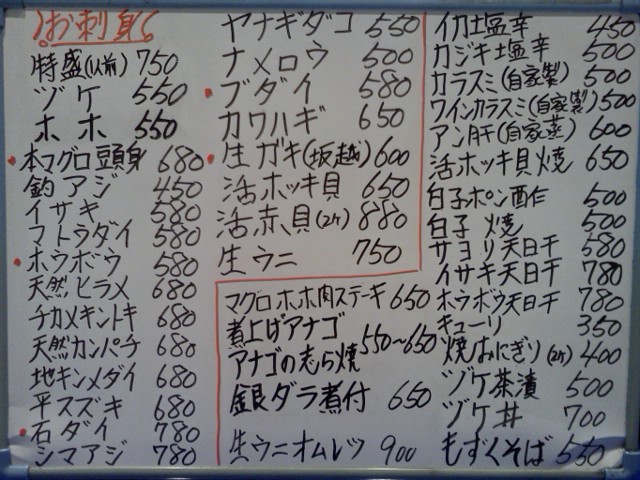 お刺身
特盛(1人前) 750
ヅケ 550
ホホ 550
本マグロ頭身 680
釣アジ 450
イサキ 580
マトウダイ 580
ホウボウ 580
天然ヒラメ 680
チカメキントキ 680
天然カンパチ 680
地キンメダイ 680
平スズキ 680
石ダイ 780
シマアジ 780
ヤナギダコ 550
ナメロウ 500
ブダイ 580
カワハギ 650
生ガキ(坂越) 600
活ホッキ貝 650
活赤貝(2ヶ) 880
生ウニ 750
マグロホホ肉ステーキ 650
煮上げアナゴ
アナゴの志ら焼 550〜650
銀ダラ煮付 650
生ウニオムレツ 900
イカ塩辛 450
カジキ塩辛 500
カラスミ(自家製) 500
ワインカラスミ(自家製) 500
アン肝(自家蒸) 600
活ホッキ貝焼 650
白子ポン酢 500
白子焼 500
サヨリ天日干 580
イサキ天日干 780
ホウボウ天日干 780
キューリ 350
焼おにぎり(2ヶ) 400
ヅケ茶漬 500
ヅケ丼 700
もずくそば 550